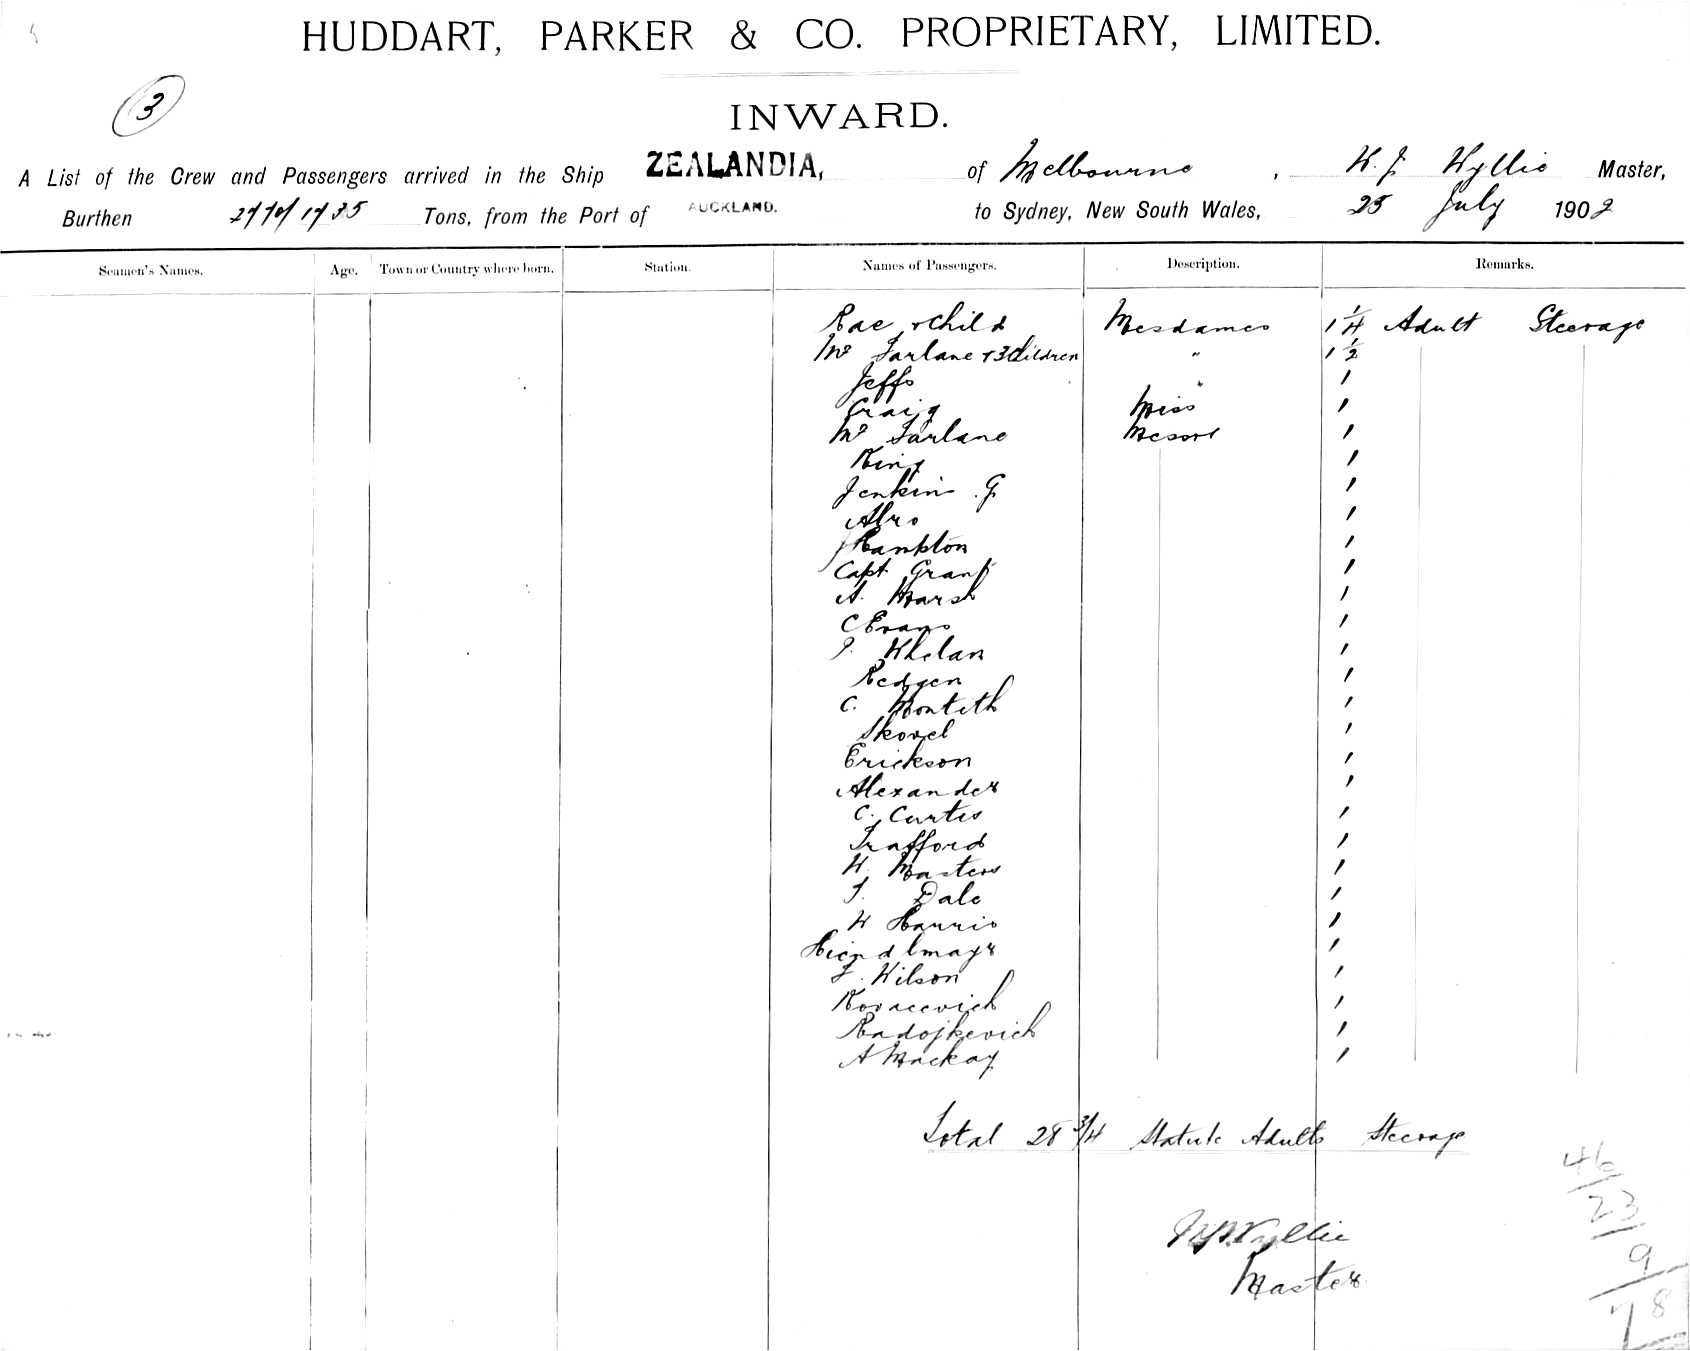 HUDDART, PARKER & CO. PROPRIETARY, LIMITED.
3
INWARD.
A List of the Crew and Passengers arrived in the Ship ZEALANDIA, of Melbourne, W. J. Wyllie Master,
Burthen Tons, from the Port of AUCKLAND. to Sydney, New South Wales, 25 July 1902
Seamen's Names. Age. Town or Country where born. Station. Names of Passengers. Description. Remarks.
Rae + child Mesdames 1 1/4 Adult Steerage
Mc Farlane + 3 Children " 1 1/2
Jeffs " 1
Craig Miss 1
Mc Farlane Messrs 1
King 1
Jenkin G. 1
1
Hampton 1
Capt Grant 1
A. Marsh 1
C Evans 1
Whelan 1
Redgen 1
C. Monteith 1
Skovel 1
Erickson 1
Alexander 1
C. Curtis 1
Trafford 1
W. Masters 1
T. Dale 1
W Harris 1
Hiendlmayr 1
Wilson 1
Kovacevich 1
Radojkevich 1
A Mackay 1
Total 28 3/4 Statute Adults Steerage
46
23
9
78
Wyllie
Master